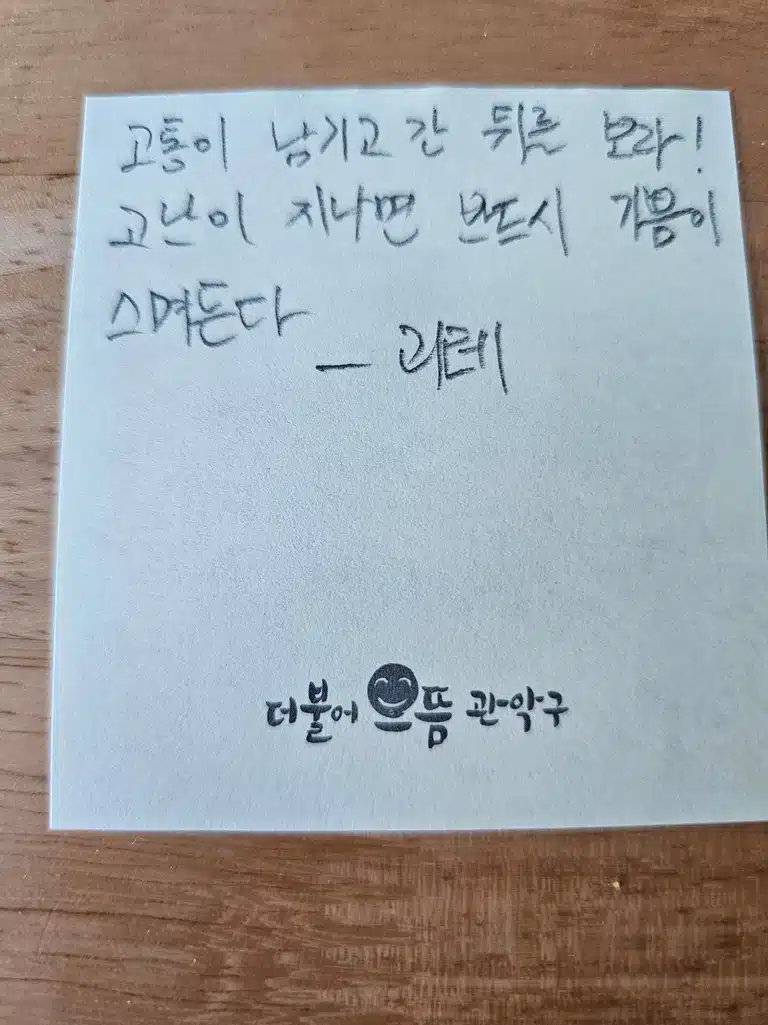 고통이 남기고 간 뒤를 보라!
고난이 지나면 반드시 기쁨이
스며든다
— 괴테
더불어 으뜸 관악구